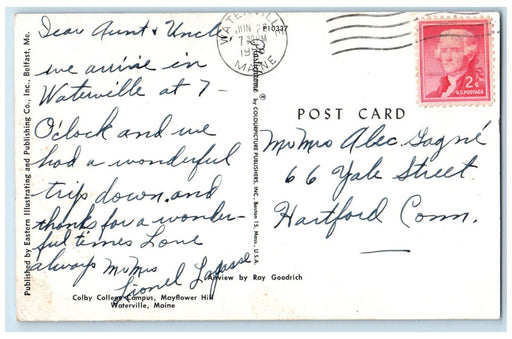 Dear Aunt & Uncle
we arrive in
Waterville at 7-
O'clock and we
had a wonderful
trip down, and
thanks for a wonder-
ful times Love
always Mr Mrs
Lionel Lafasse
Published by Eastern Illustrating and Publishing Co., Inc., Belfast, Me.
by COLOURPICTURE PUBLISHERS, INC., Boston 15, Mass., U.S.A.
®
WATERVILLE
JUN
7
MAINE
P10337
2¢
U.S. POSTAGE
POST CARD
Mr Mrs Alec Gagné
66 Yale Street
Hartford Conn.
Airview by Ray Goodrich
Colby College Campus, Mayflower Hill
Waterville, Maine